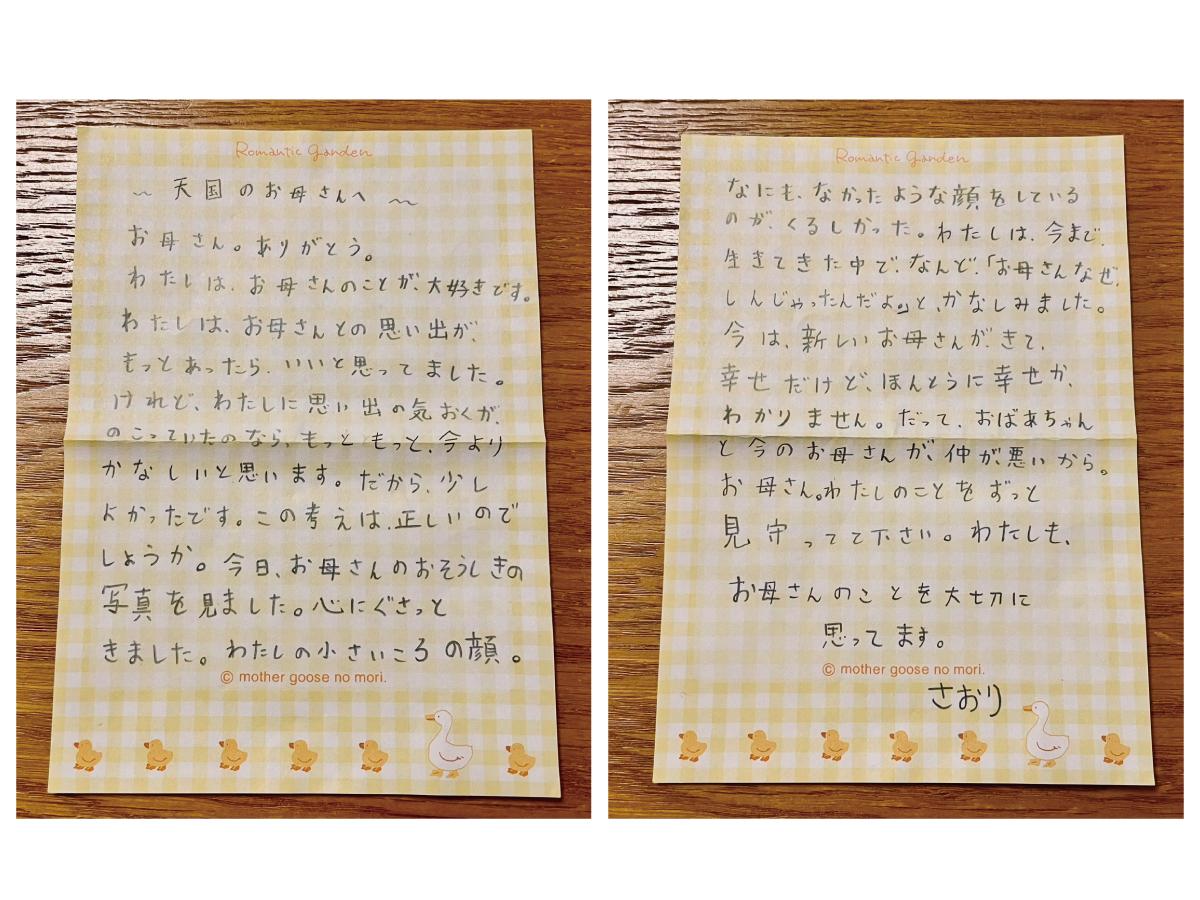 Romantic Garden
〜 天国のお母さんへ 〜
お母さん。ありがとう。
わたしは、お母さんのことが、大好きです。
わたしは、お母さんとの思い出が、
もっとあったら、いいと思ってました。
けれど、わたしに思い出の気おくが、
のこっていたのなら、もっともっと、今より
かなしいと思います。だから、少し
よかったです。この考えは、正しいので
しょうか。今日、お母さんのおそうしきの
写真を見ました。心にぐさっと
きました。わたしの小さいころの顔。
© mother goose no mori.
Romantic Garden
なにも、なかったような顔をしている
のが、くるしかった。わたしは、今まで、
生きてきた中で、なんど、「お母さんなぜ、
しんじゃったんだよ」と、かなしみました。
今は、新しいお母さんが、きて、
幸せだけど、ほんとうに幸せか、
わかりません。だって、おばあちゃん
と今のお母さんが、仲が、悪いから。
お母さん。わたしのことをずっと
見守ってて下さい。わたしも、
お母さんのことを大切に
思ってます。
© mother goose no mori.
さおり